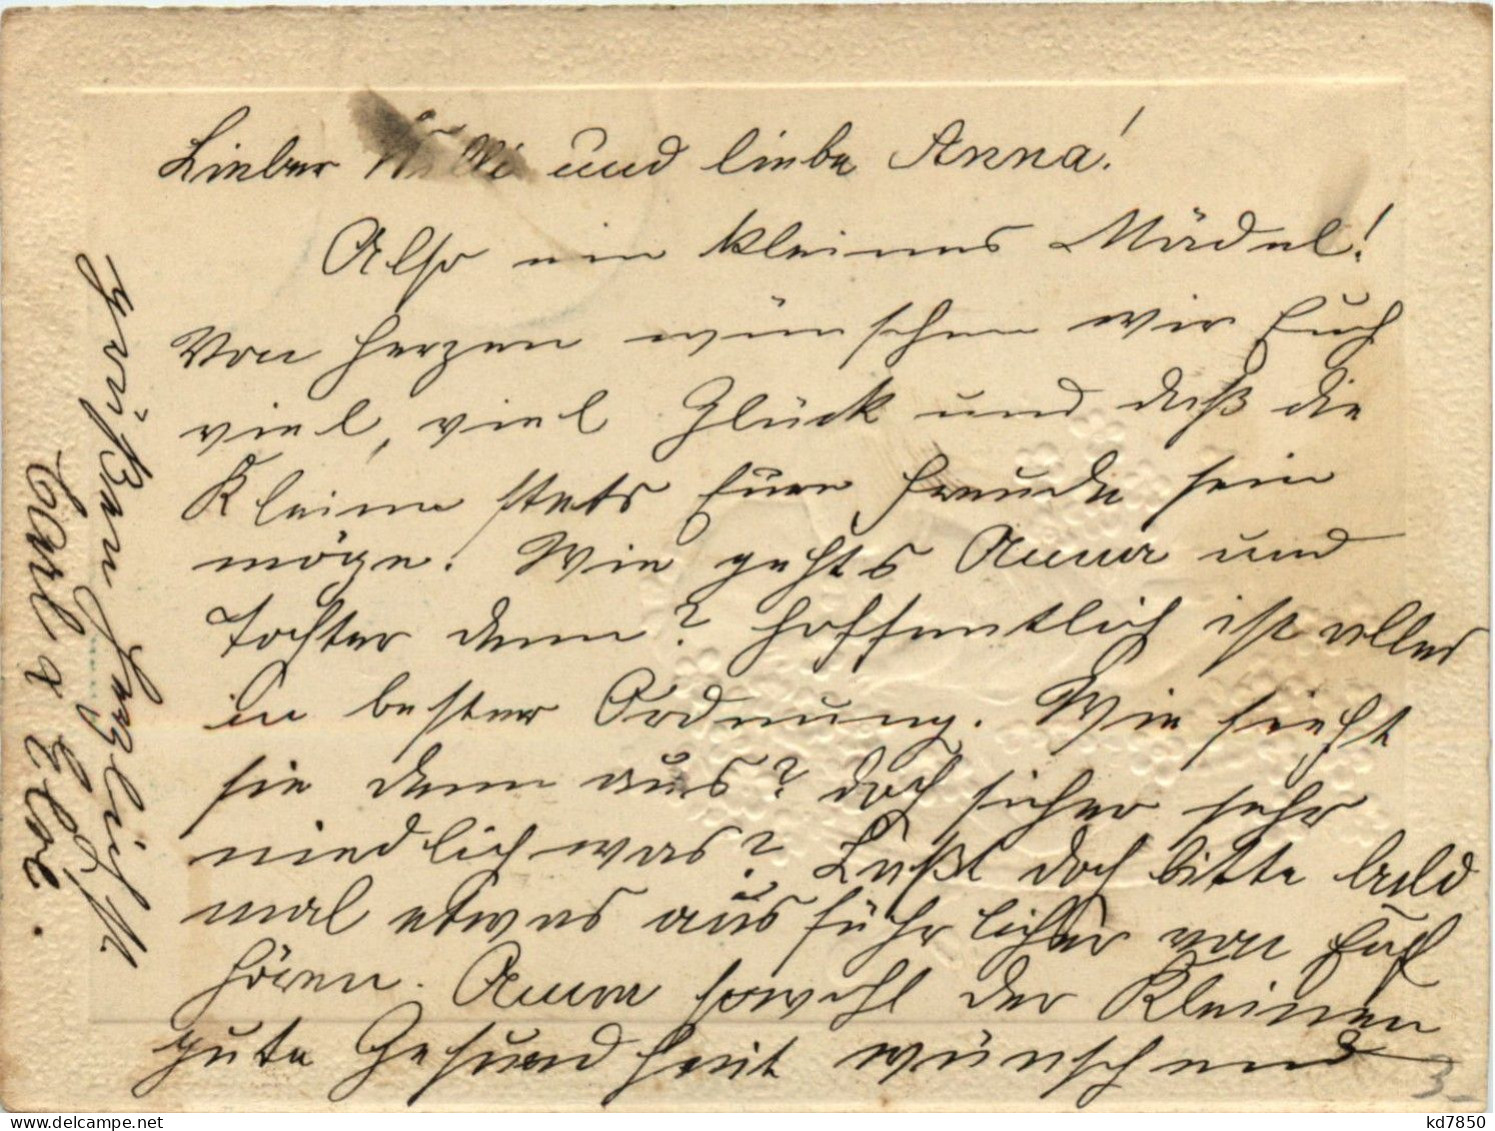 Lieber Willi und liebe Anna!
Also ein kleines Mädel!
Von Herzen wünschen wir Euch
viel, viel Glück und daß die
Kleine stets Eure Freude sein
möge. Wie gehts Anna und
Tochter denn? Hoffentlich ist alles
in bester Ordnung. Wie sieht
sie denn aus? Doch sicher sehr
niedlich was? Laßt doch bitte bald
mal etwas ausführlicher von Euch
hören. Anna sowohl der Kleinen
gute Gesundheit wünschend
grüßen herzlichst.
Carl u Else.
3-
delcampe.net
kd7850